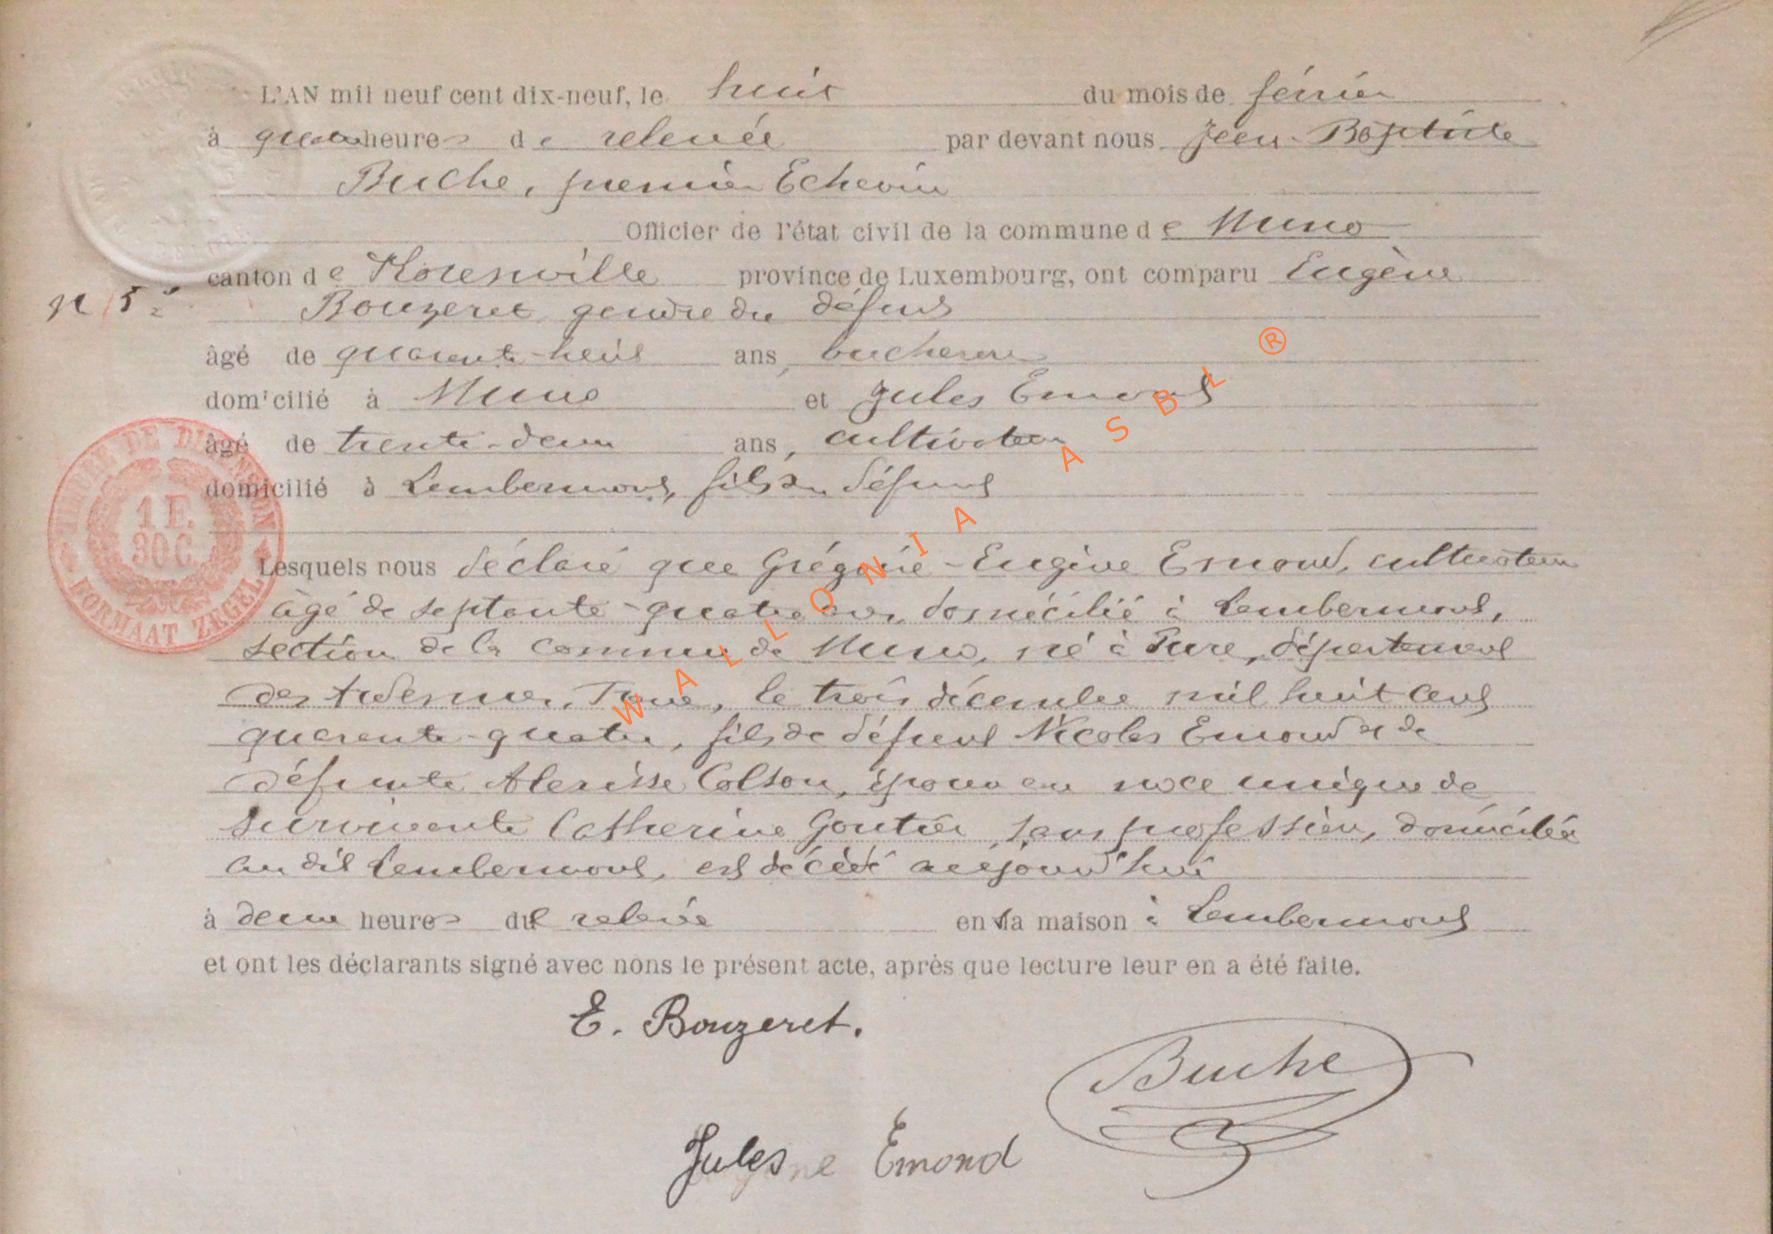 L'AN mil neuf cent dix-neuf, le huit du mois de février
à quatre heures de relevée par devant nous Jean-Baptiste
Buche, premier Echevin
Officier de l'état civil de la commune de Muno
canton de Florenville province de Luxembourg, ont comparu Eugène
N 5
Bouzeret, gendre du défunt
âgé de quarante-huit ans, bucheron
domicilié à Muno et Jules Emond
âgé de trente-deux ans, cultivateur
domicilié à Lambermont, fils du défunt
Lesquels nous déclaré que Grégoire-Eugène Emond, cultivateur
âgé de septante-quatre ans, domicilié à Lambermont,
section de la commune de Muno, né à Pure, département
des Ardennes, France, le trois décembre mil huit cent
quarante-quatre, fils de défunt Nicolas Emond et de
défunte Colson, époux en noce unique de
survivante Catherine Goutier, sans profession, domiciliée
au dit Lambermont, est décédé aujourd'hui
à deux heures de relevée en sa maison à Lambermont
et ont les déclarants signé avec nous le présent acte, après que lecture leur en a été faite.
E. Bouzeret.
Buche
Jules Emond
TIMBRE DE DIMENSION
1 F.
30 C.
FORMAAT ZEGEL
WALLONIA ASBL ®